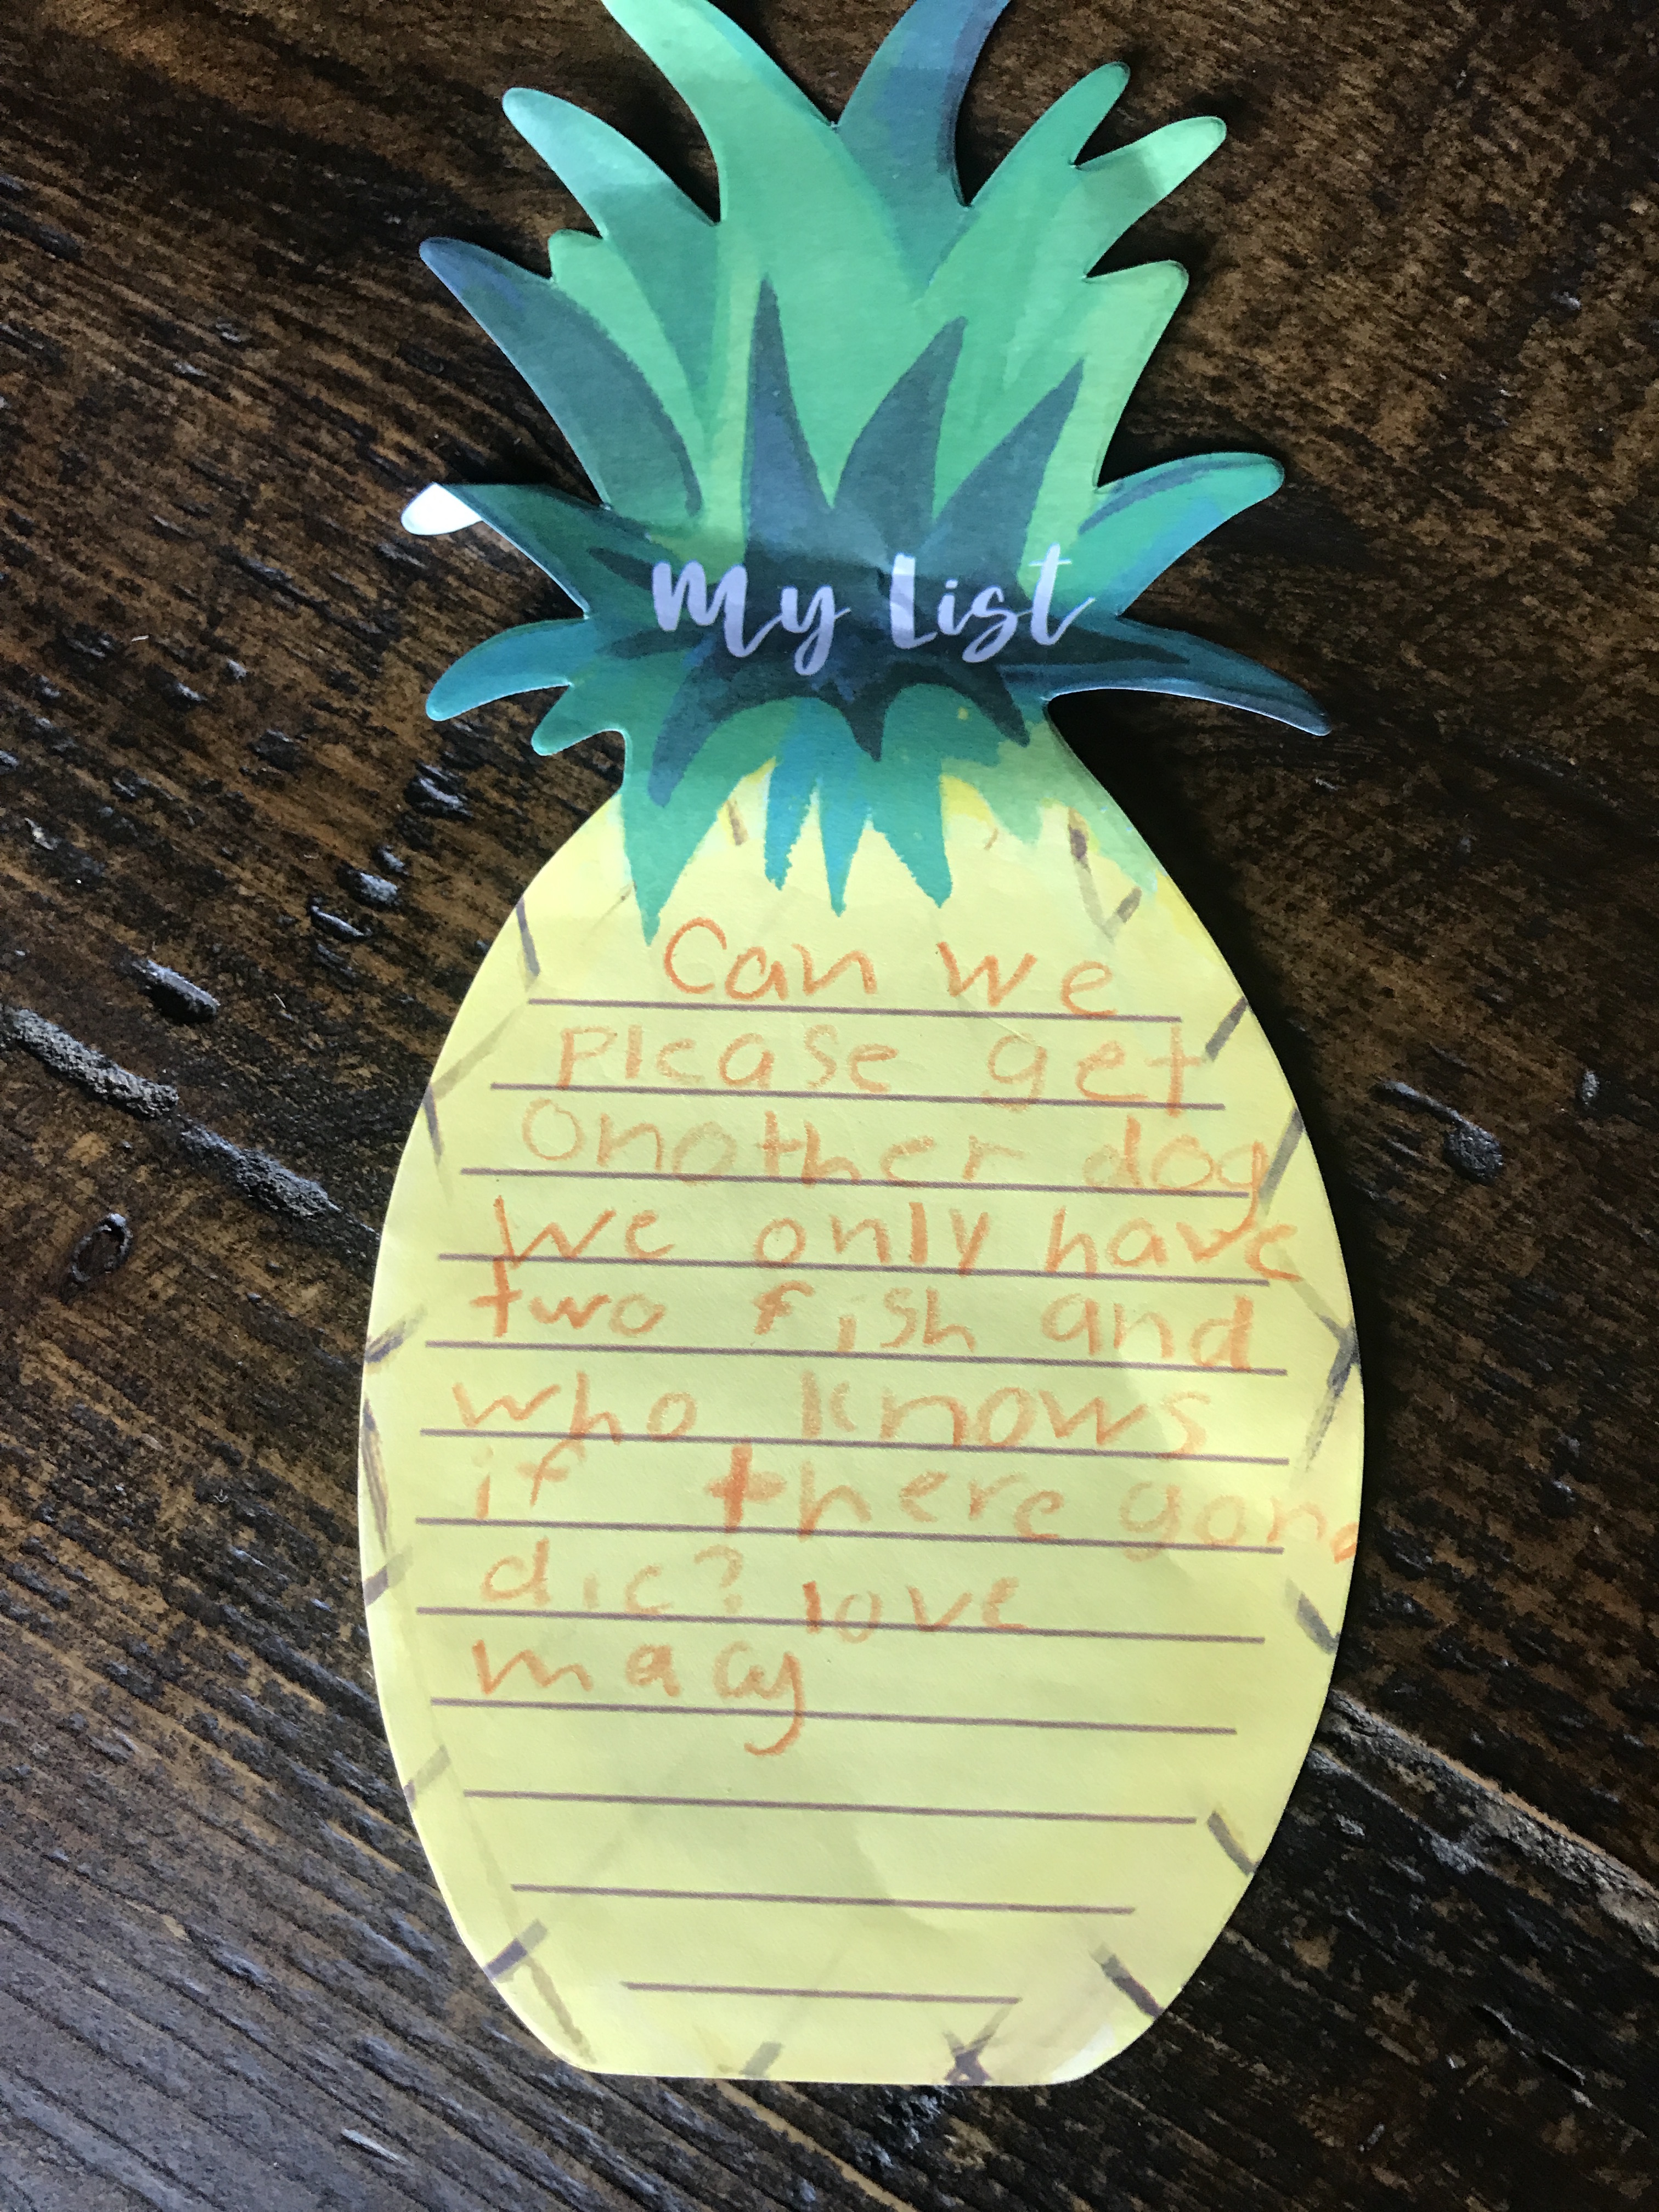 My List
Can we
Please get
Onother dog
We only have
two fish and
who knows
if there gona
die? love
macy